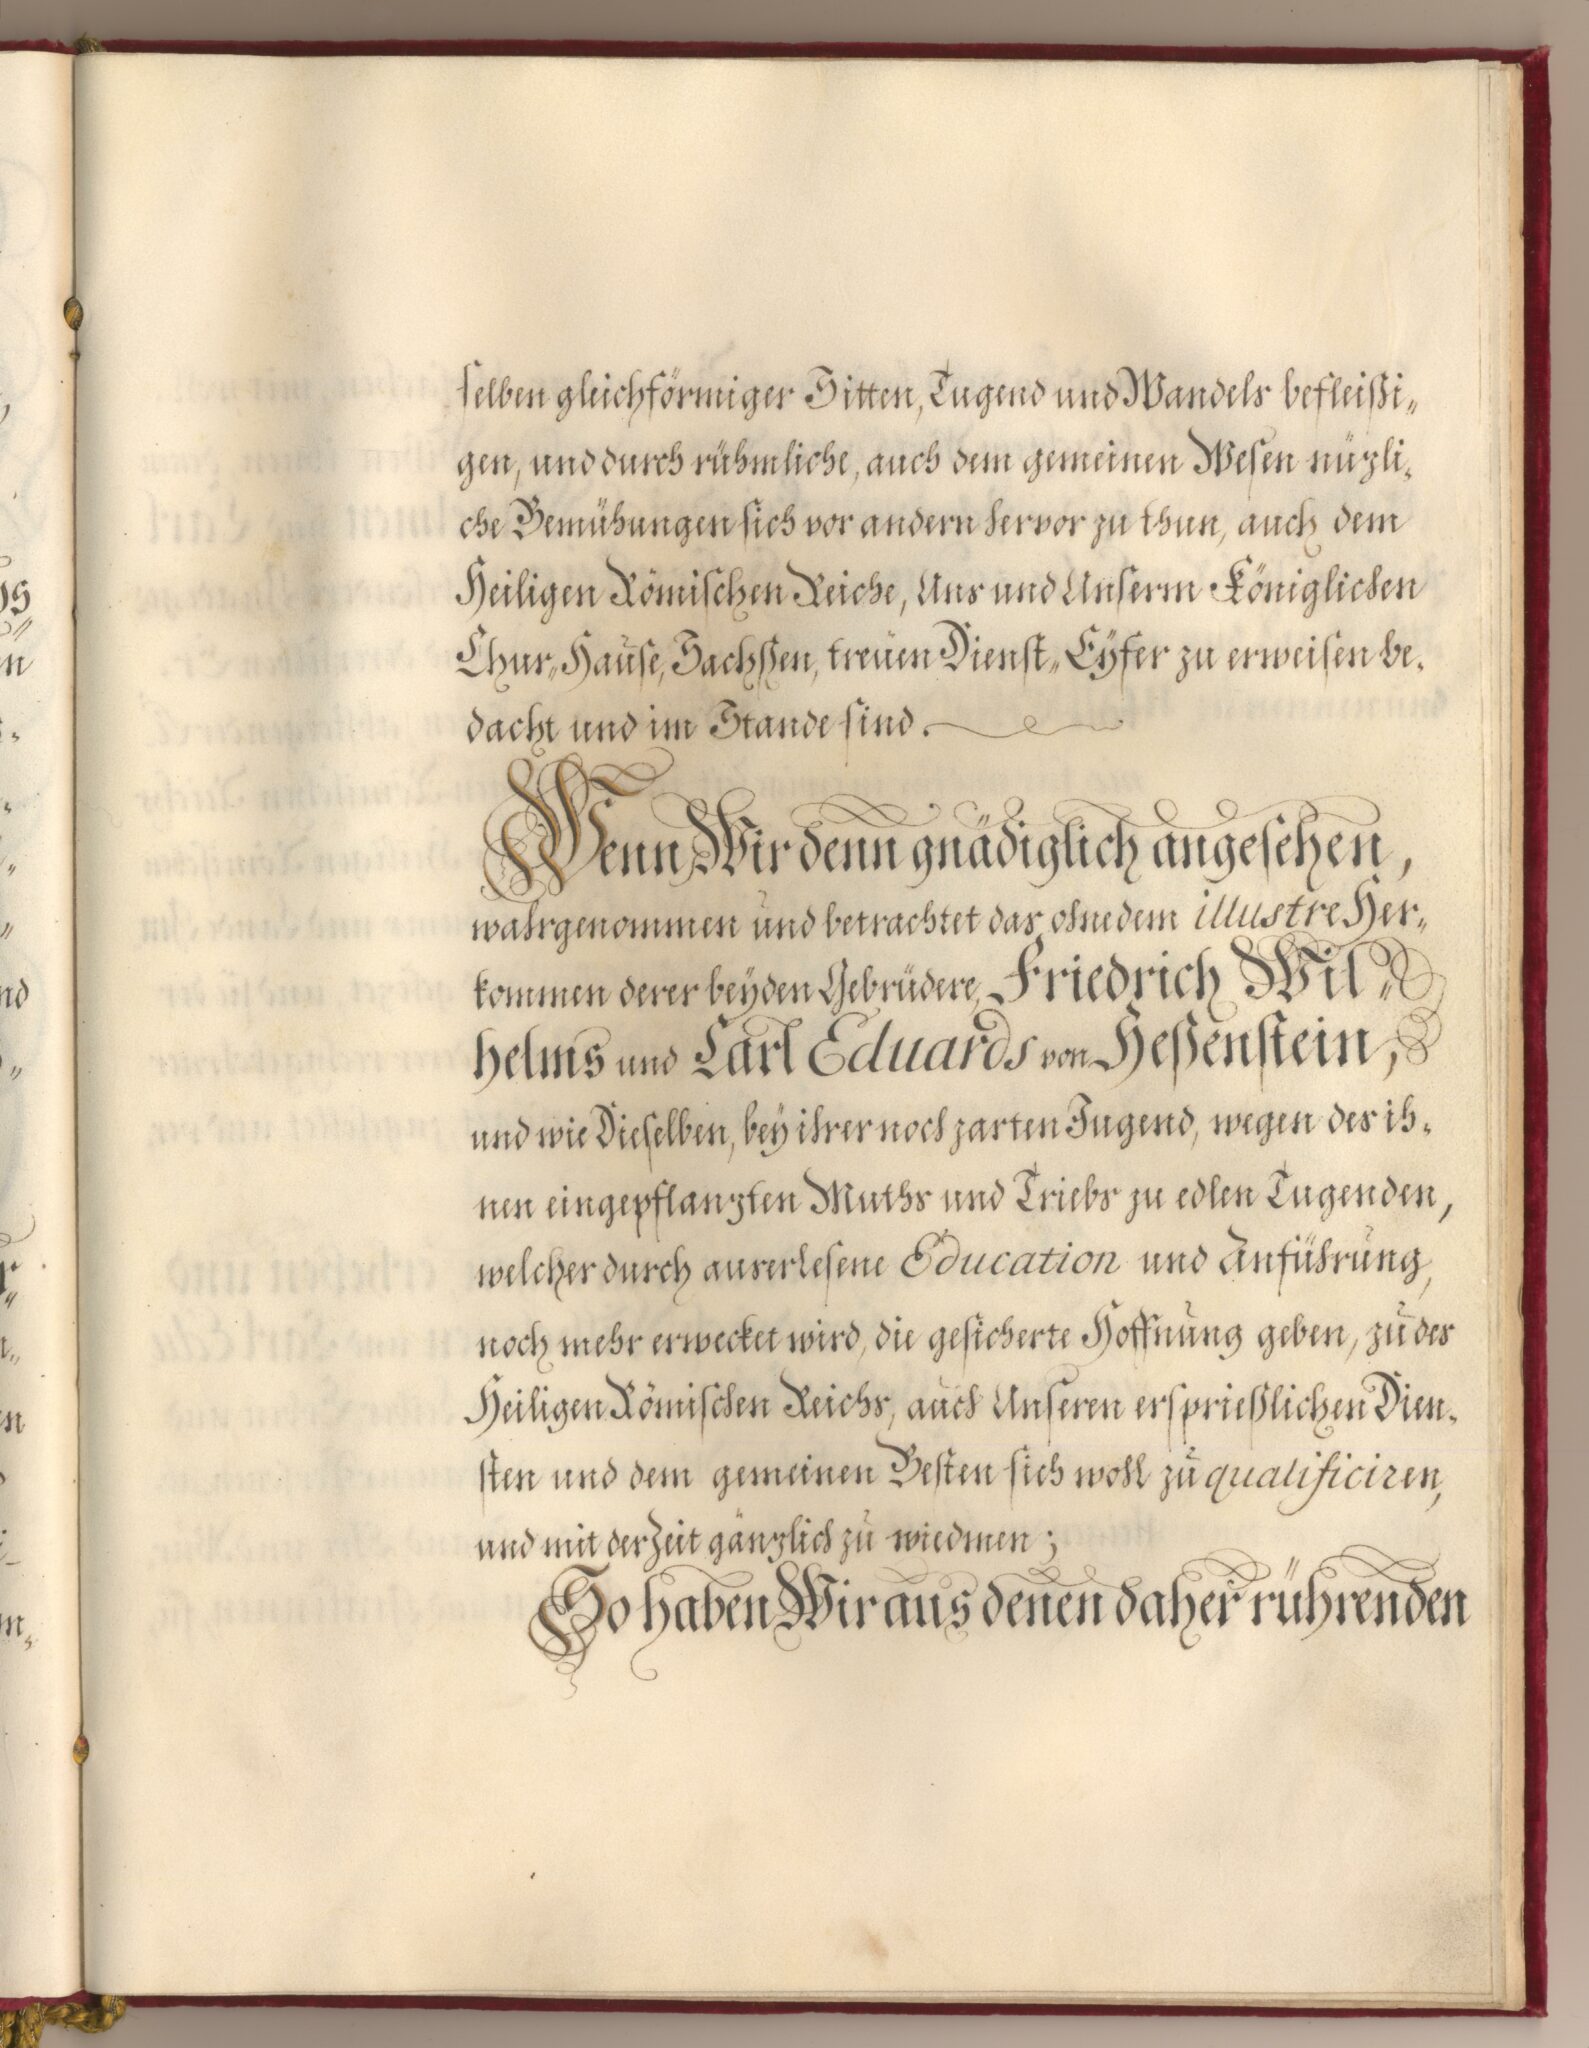 selben gleichförmiger Sitten, Tugend und Wandels befleißi„
gen, und durch rühmliche, auch dem gemeinen Wesen nüzli„
che Bemühungen sich vor andern hervor zu thun, auch dem
Heiligen Römischen Reiche, Uns und Unserm Königlichen
Chur„Hause, Sachßen, treuen Dienst„Eÿfer zu erweisen be„
dacht und im Stande sind.
Wenn Wir denn gnädiglich angesehen,
wahrgenommen und betrachtet das ohnedem illustre Her„
kommen derer beÿden Gebrüdere, Friedrich Wil„
helms und Carl Eduards von Heßenstein,
und wie Dieselben, beÿ ihrer noch zarten Jugend, wegen des ih„
nen eingepflanzten Muths und Triebs zu edlen Tugenden,
welcher durch auserlesene Education und Anführung,
noch mehr erwecket wird, die gesicherte Hoffnung geben, zu des
Heiligen Römischen Reichs, auch Unseren ersprießlichen Dien„
sten und dem gemeinen Besten sich wohl zu qualificiren,
und mit der Zeit gänzlich zu wiedmen;
So haben Wir aus denen daher rührenden